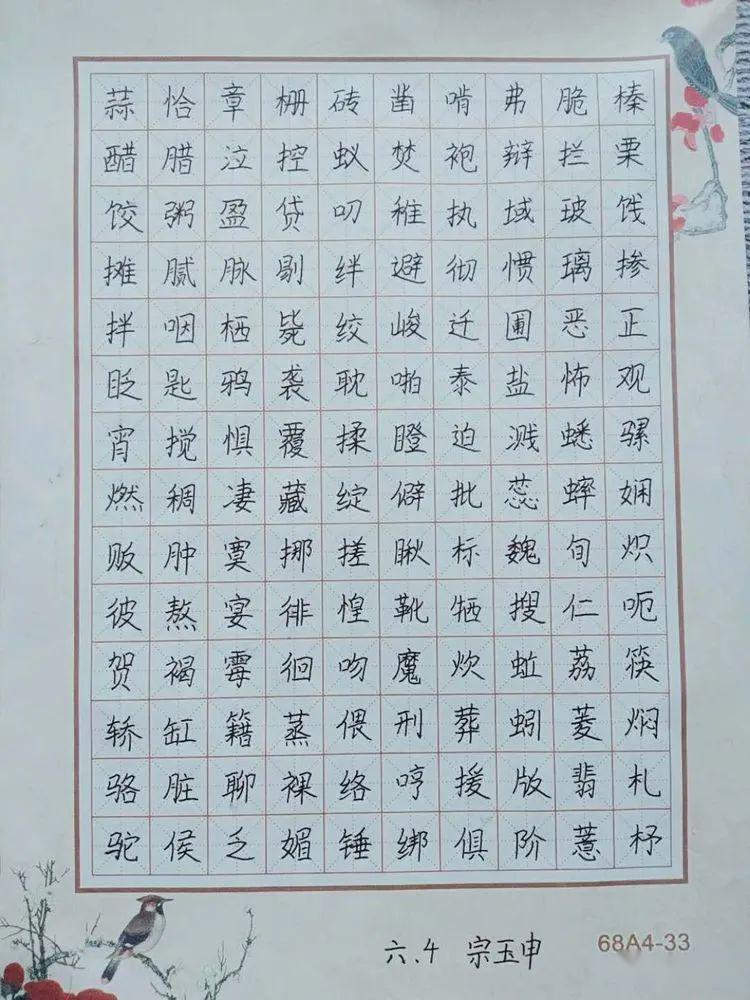 蒜恰章栅砖凿啃弗脆榛
醋腊泣控蚁焚袍辩拦栗
饺粥盈贷叨稚执域玻饯
摊腻脉剔绊避彻惯璃掺
拌咽栖毙绞峻迁圃恶正
眨匙鸦袭耽啪泰盐怖观
宵搅惧覆揉瞪迫溅蟋骡
燃稠凄藏绽僻批蕊蟀娴
贩肿寞挪搓瞅标魏旬炽
彼熬宴徘惶靴牺搜仁呃
贺褐霉徊吻魔炊蚯荔筷
轿缸籍蒸偎刑葬蚓菱焖
骆脏聊裸络哼援版翡札
驼侯乏媚锤绑俱阶薏杼
六.4 宗玉申 68A4-33